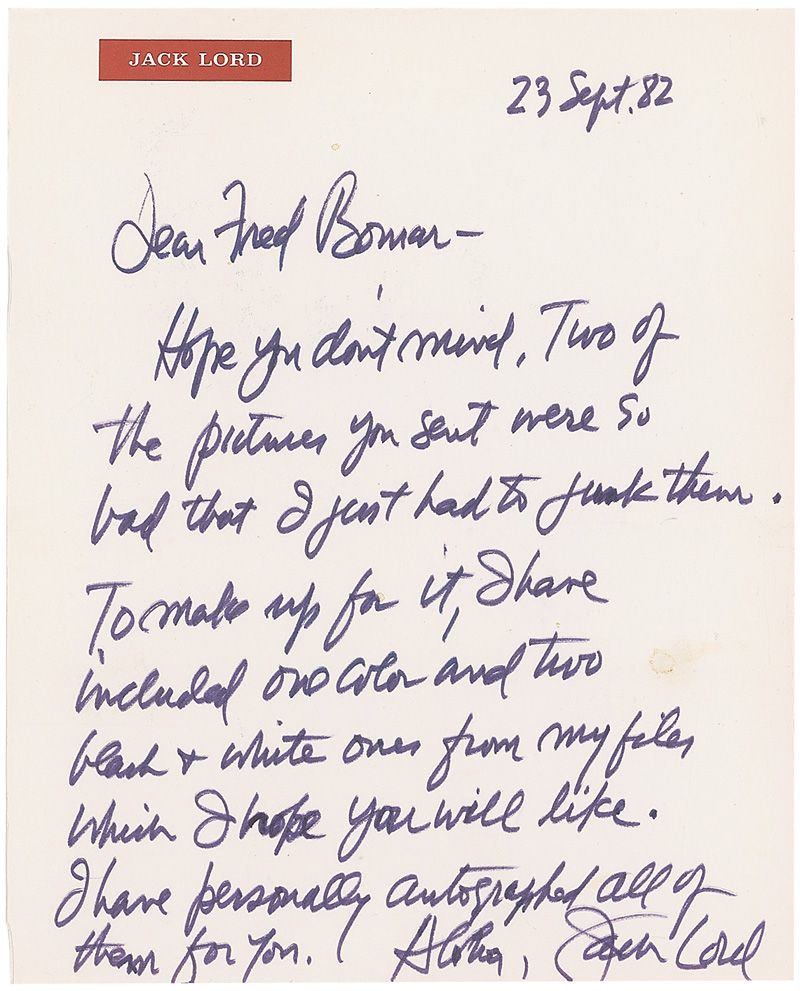 JACK LORD
23 Sept. 82
Dear Fred Bomar –
Hope you don't mind. Two of
the pictures you sent were so
bad that I just had to junk them.
To make up for it, I have
included one color and two
black + white ones from my files
which I hope you will like.
I have personally autographed all of
them for you. Aloha, Jack Lord